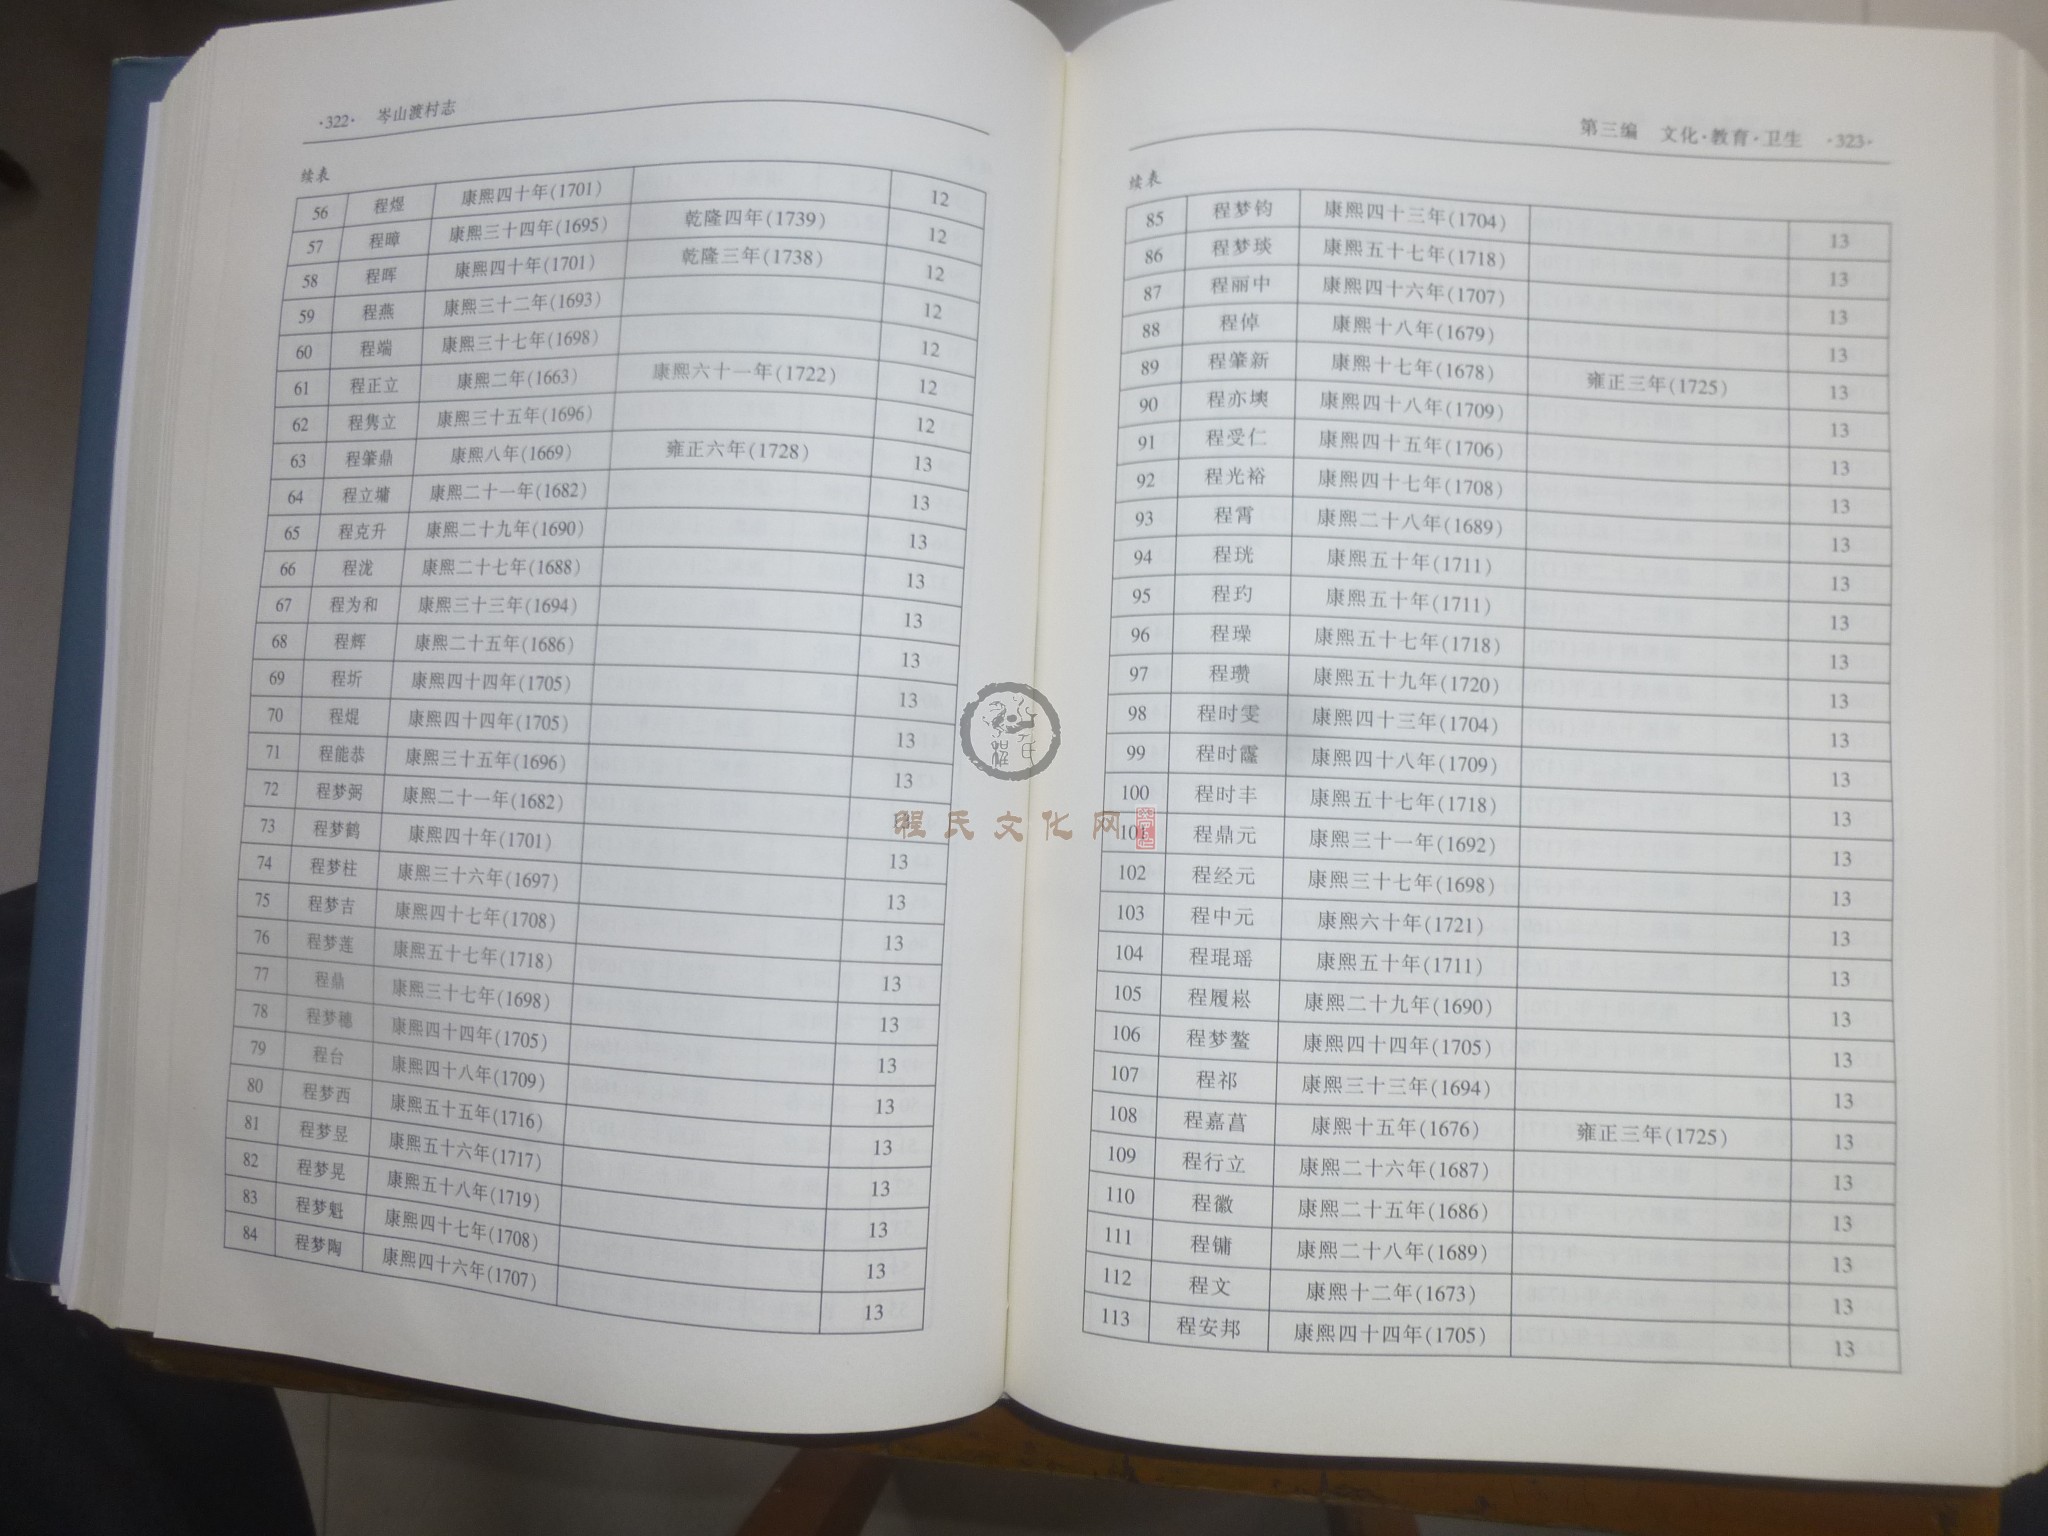 ·322· 岑山渡村志
续表
56 程煜 康熙四十年(1701) 12
57 程暲 康熙三十四年(1695) 乾隆四年(1739) 12
58 程晖 康熙四十年(1701) 乾隆三年(1738) 12
59 程燕 康熙三十二年(1693) 12
60 程端 康熙三十七年(1698) 12
61 程正立 康熙二年(1663) 康熙六十一年(1722) 12
62 程隽立 康熙三十五年(1696) 12
63 程肇鼎 康熙八年(1669) 雍正六年(1728) 13
64 程立墉 康熙二十一年(1682) 13
65 程克升 康熙二十九年(1690) 13
66 程泷 康熙二十七年(1688) 13
67 程为和 康熙三十三年(1694) 13
68 程辉 康熙二十五年(1686) 13
69 程圻 康熙四十四年(1705) 13
70 程焜 康熙四十四年(1705) 13
71 程能恭 康熙三十五年(1696) 13
72 程梦弼 康熙二十一年(1682) 13
73 程梦鹤 康熙四十年(1701) 13
74 程梦柱 康熙三十六年(1697) 13
75 程梦吉 康熙四十七年(1708) 13
76 程梦莲 康熙五十七年(1718) 13
77 程鼎 康熙三十七年(1698) 13
78 程梦穗 康熙四十四年(1705) 13
79 程台 康熙四十八年(1709) 13
80 程梦西 康熙五十五年(1716) 13
81 程梦昱 康熙五十六年(1717) 13
82 程梦晃 康熙五十八年(1719) 13
83 程梦魁 康熙四十七年(1708) 13
84 程梦陶 康熙四十六年(1707) 13
第三编 文化·教育·卫生 ·323·
续表
85 程梦钧 康熙四十三年(1704) 13
86 程梦琰 康熙五十七年(1718) 13
87 程丽中 康熙四十六年(1707) 13
88 程倬 康熙十八年(1679) 13
89 程肇新 康熙十七年(1678) 雍正三年(1725) 13
90 程亦墺 康熙四十八年(1709) 13
91 程受仁 康熙四十五年(1706) 13
92 程光裕 康熙四十七年(1708) 13
93 程霄 康熙二十八年(1689) 13
94 程珖 康熙五十年(1711) 13
95 程玓 康熙五十年(1711) 13
96 程璪 康熙五十七年(1718) 13
97 程瓒 康熙五十九年(1720) 13
98 程时雯 康熙四十三年(1704) 13
99 程时 康熙四十八年(1709) 13
100 程时丰 康熙五十七年(1718) 13
101 程鼎元 康熙三十一年(1692) 13
102 程经元 康熙三十七年(1698) 13
103 程中元 康熙六十年(1721) 13
104 程琨瑶 康熙五十年(1711) 13
105 程履崧 康熙二十九年(1690) 13
106 程梦鳌 康熙四十四年(1705) 13
107 程祁 康熙三十三年(1694) 13
108 程嘉菖 康熙十五年(1676) 雍正三年(1725) 13
109 程行立 康熙二十六年(1687) 13
110 程徽 康熙二十五年(1686) 13
111 程镛 康熙二十八年(1689) 13
112 程文 康熙十二年(1673) 13
113 程安邦 康熙四十四年(1705) 13
程氏文化网